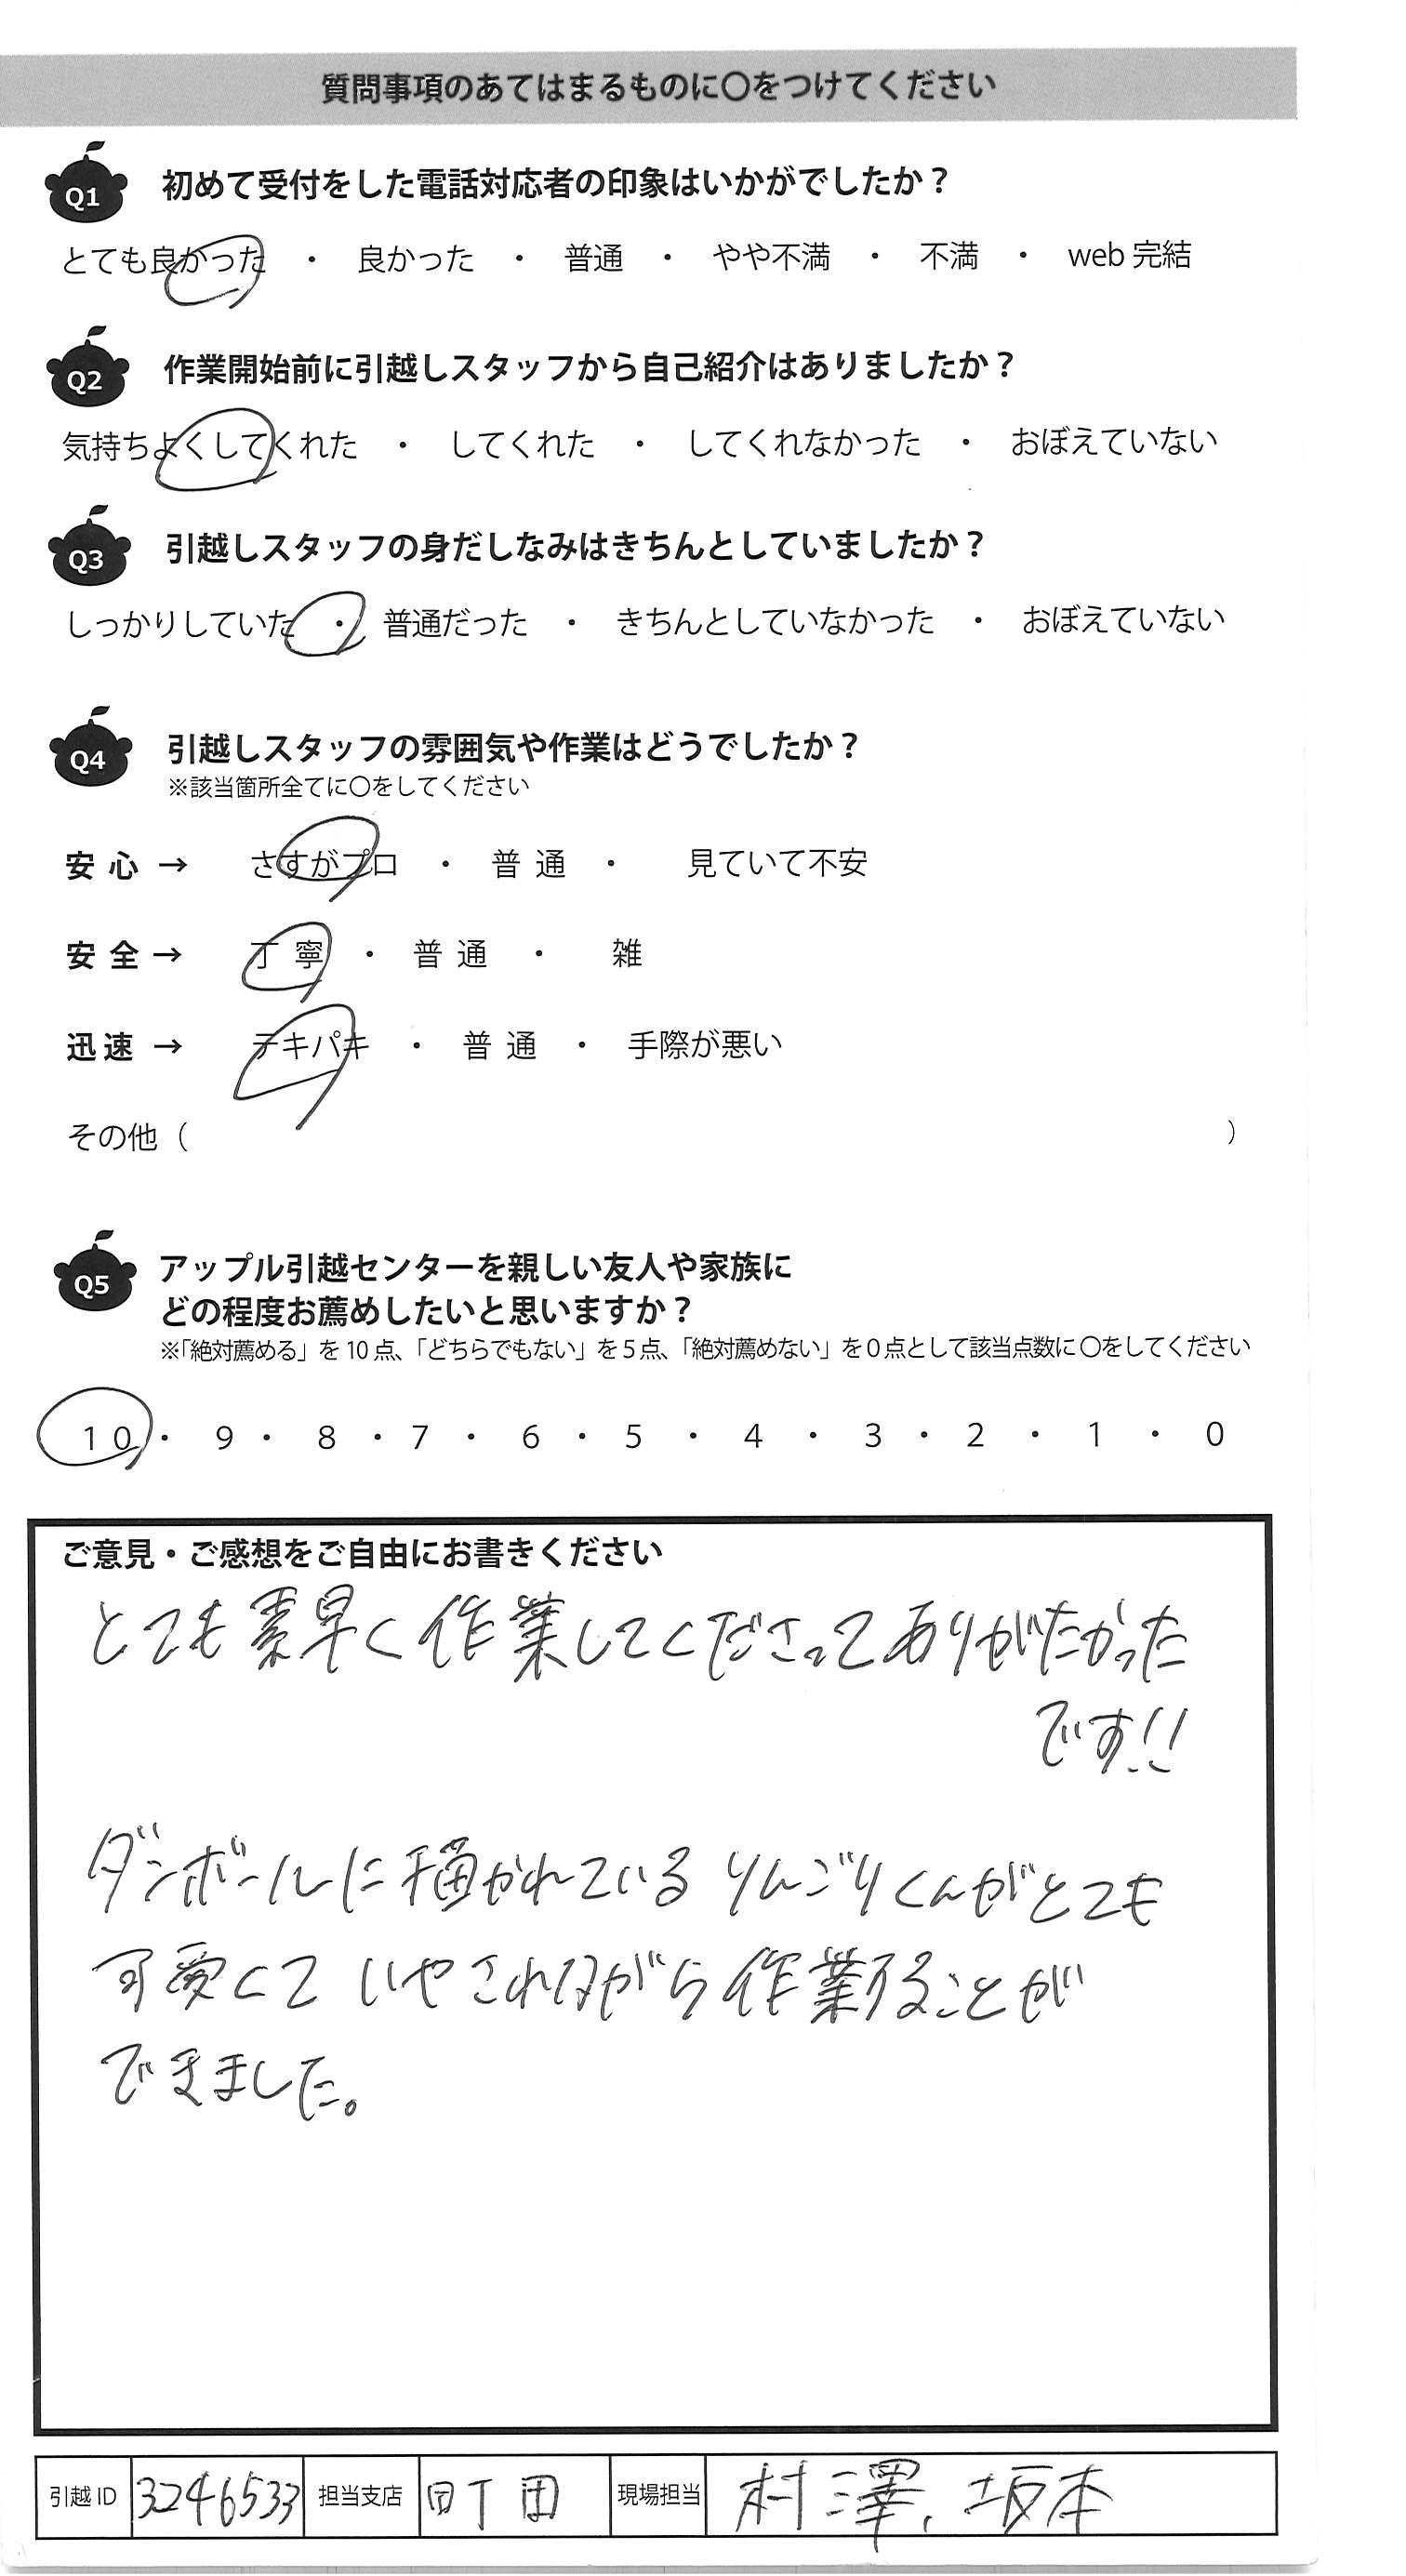 質問事項のあてはまるものに〇をつけてください
Q1 初めて受付をした電話対応者の印象はいかがでしたか？
とても良かった ・ 良かった ・ 普通 ・ やや不満 ・ 不満 ・ web 完結
Q2 作業開始前に引越しスタッフから自己紹介はありましたか？
気持ちよくしてくれた ・ してくれた ・ してくれなかった ・ おぼえていない
Q3 引越しスタッフの身だしなみはきちんとしていましたか？
しっかりしていた ・ 普通だった ・ きちんとしていなかった ・ おぼえていない
Q4 引越しスタッフの雰囲気や作業はどうでしたか？
※該当箇所全てに〇をしてください
安心 → さすがプロ ・ 普通 ・ 見ていて不安
安全 → 丁寧 ・ 普通 ・ 雑
迅速 → テキパキ ・ 普通 ・ 手際が悪い
その他（ ）
Q5 アップル引越センターを親しい友人や家族に
どの程度お薦めしたいと思いますか？
※「絶対薦める」を10点、「どちらでもない」を5点、「絶対薦めない」を0点として該当点数に〇をしてください
10 ・ 9 ・ 8 ・ 7 ・ 6 ・ 5 ・ 4 ・ 3 ・ 2 ・ 1 ・ 0
ご意見・ご感想をご自由にお書きください
とても素早く作業してくださってありがたかった
です!!
ダンボールに描かれているりんごりくんがとても
可愛くていやされながら作業することが
できました。
引越ID 3246533 担当支店 町田 現場担当 村澤、坂本